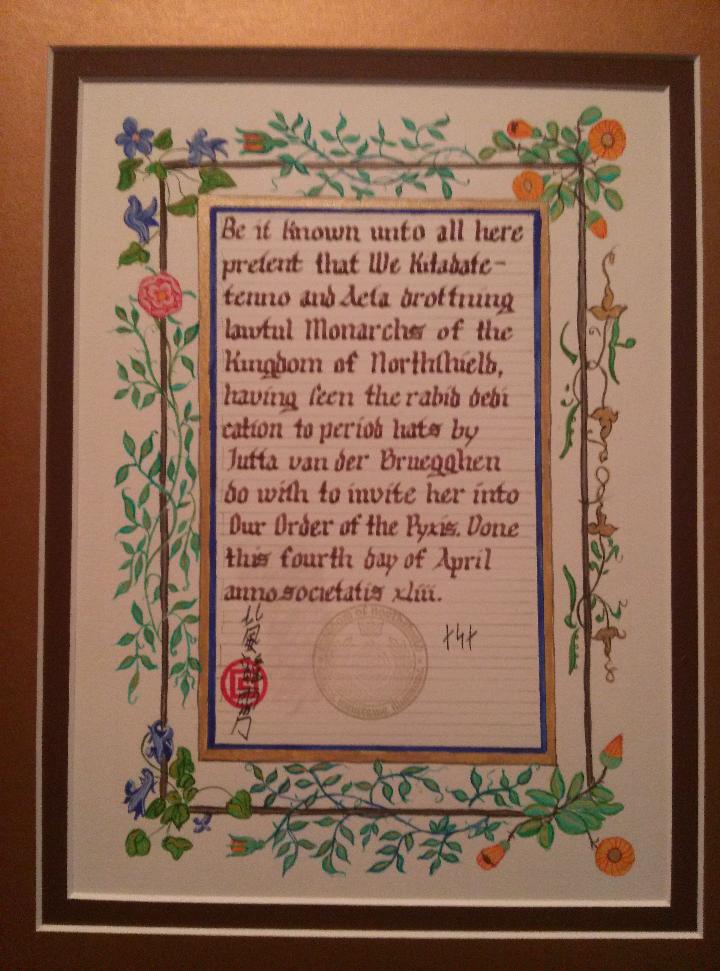 Be it known unto all here
present that We Kitadate-
tenno and Aesa drottning
lawful Monarchs of the
Kingdom of Northshield,
having seen the rabid dedi
cation to period hats by
Jutta van der Brugghen
do wish to invite her into
Our Order of the Pyxis. Done
this fourth day of April
anno societatis xliii.